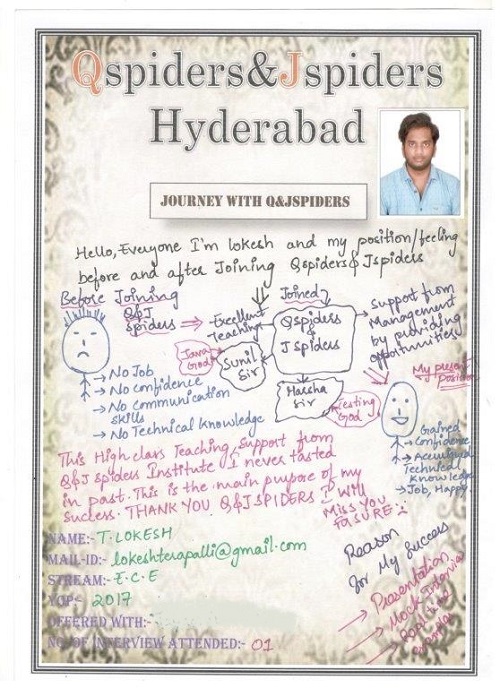 Qspiders&Jspiders
Hyderabad
JOURNEY WITH Q&JSPIDERS
Hello, Everyone I'm lokesh and my position/feeling
before and after Joining Qspiders & Jspiders
Before Joining
Q&J
spiders
Excellent
Teaching
Joined
Qspiders
&
Jspiders
Support from
Management
by providing
opportunities
Java
God
Sunil
Sir
Harsha
Sir
Testing
God
My present
Position
→ No Job
→ No confidence
→ No communication
skills
→ No Technical Knowledge
Gained
→ Confidence
→ Acquired
Technical
Knowledge
→ Job, Happy
This High class Teaching, Support from
Q&J spiders Institute I never tasted
in past. This is the main purpose of my
success. THANK YOU Q&JSPIDERS I will
Miss You
NAME:- T. LOKESH
MAIL-ID:- lokeshterapalli@gmail.com
STREAM:- E.C.E
YOP:- 2017
OFFERED WITH:-
NO. OF INTERVIEW ATTENDED:- 01
Reason
for My Success
→ Presentation
→ Mock Interview